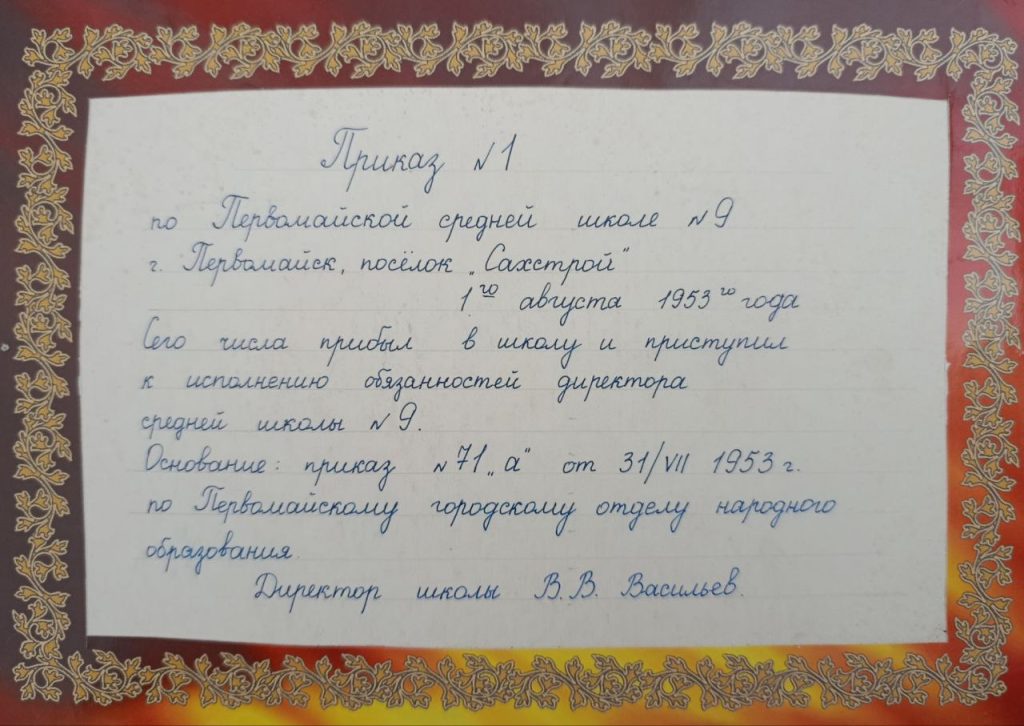 Приказ №1
по Первомайской средней школе №9
г. Первомайск, посёлок „Сахстрой"
1го августа 1953го года
Сего числа прибыл в школу и приступил
к исполнению обязанностей директора
средней школы №9.
Основание: приказ №71„а" от 31/VII 1953 г.
по Первомайскому городскому отделу народного
образования.
Директор школы В.В. Васильев.